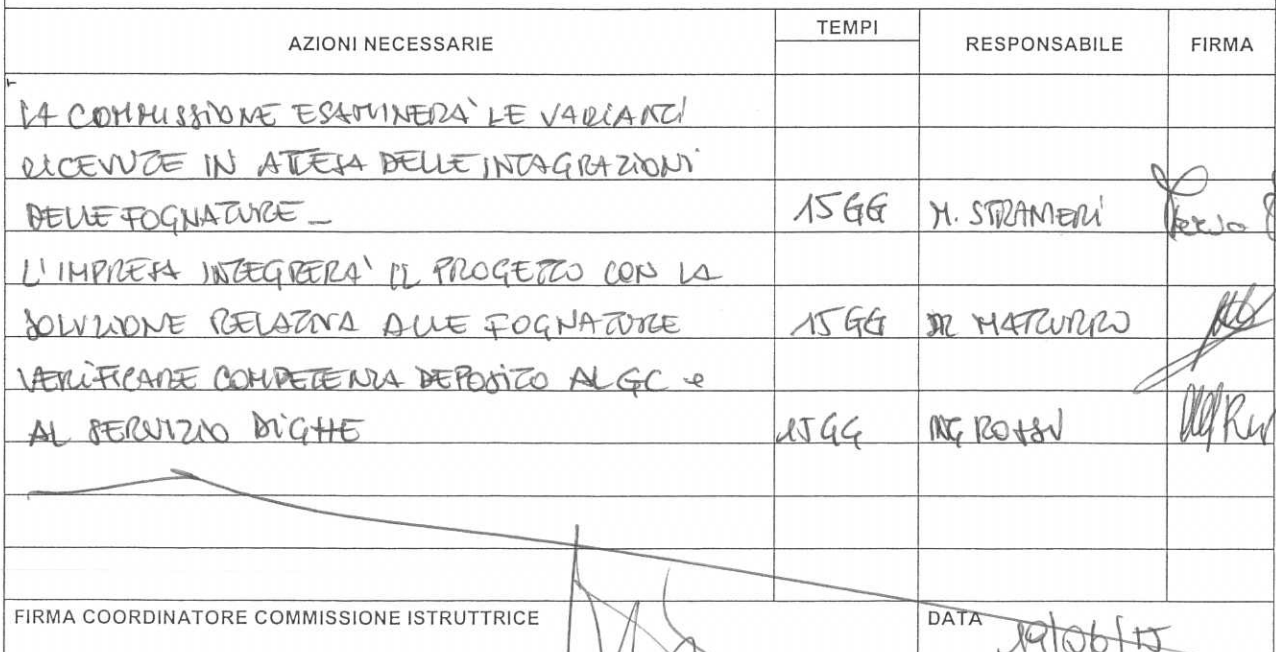 AZIONI NECESSARIE TEMPI RESPONSABILE FIRMA
LA COMMISSIONE ESAMINERA' LE VARIANTI
RICEVUTE IN ATTESA DELLE INTAGRAZIONI
DELLE FOGNATURE - 15 GG M. STRAMERI
L'IMPRESA INTEGRERA' IL PROGETTO CON LA
SOLUZIONE RELATIVA ALLE FOGNATURE 15 GG DR MATURRO
VERIFICARE COMPETENZA DEPOSITO AL GC e
AL SERVIZIO DIGHE 15 GG ING ROSSI
FIRMA COORDINATORE COMMISSIONE ISTRUTTRICE DATA 19/06/15